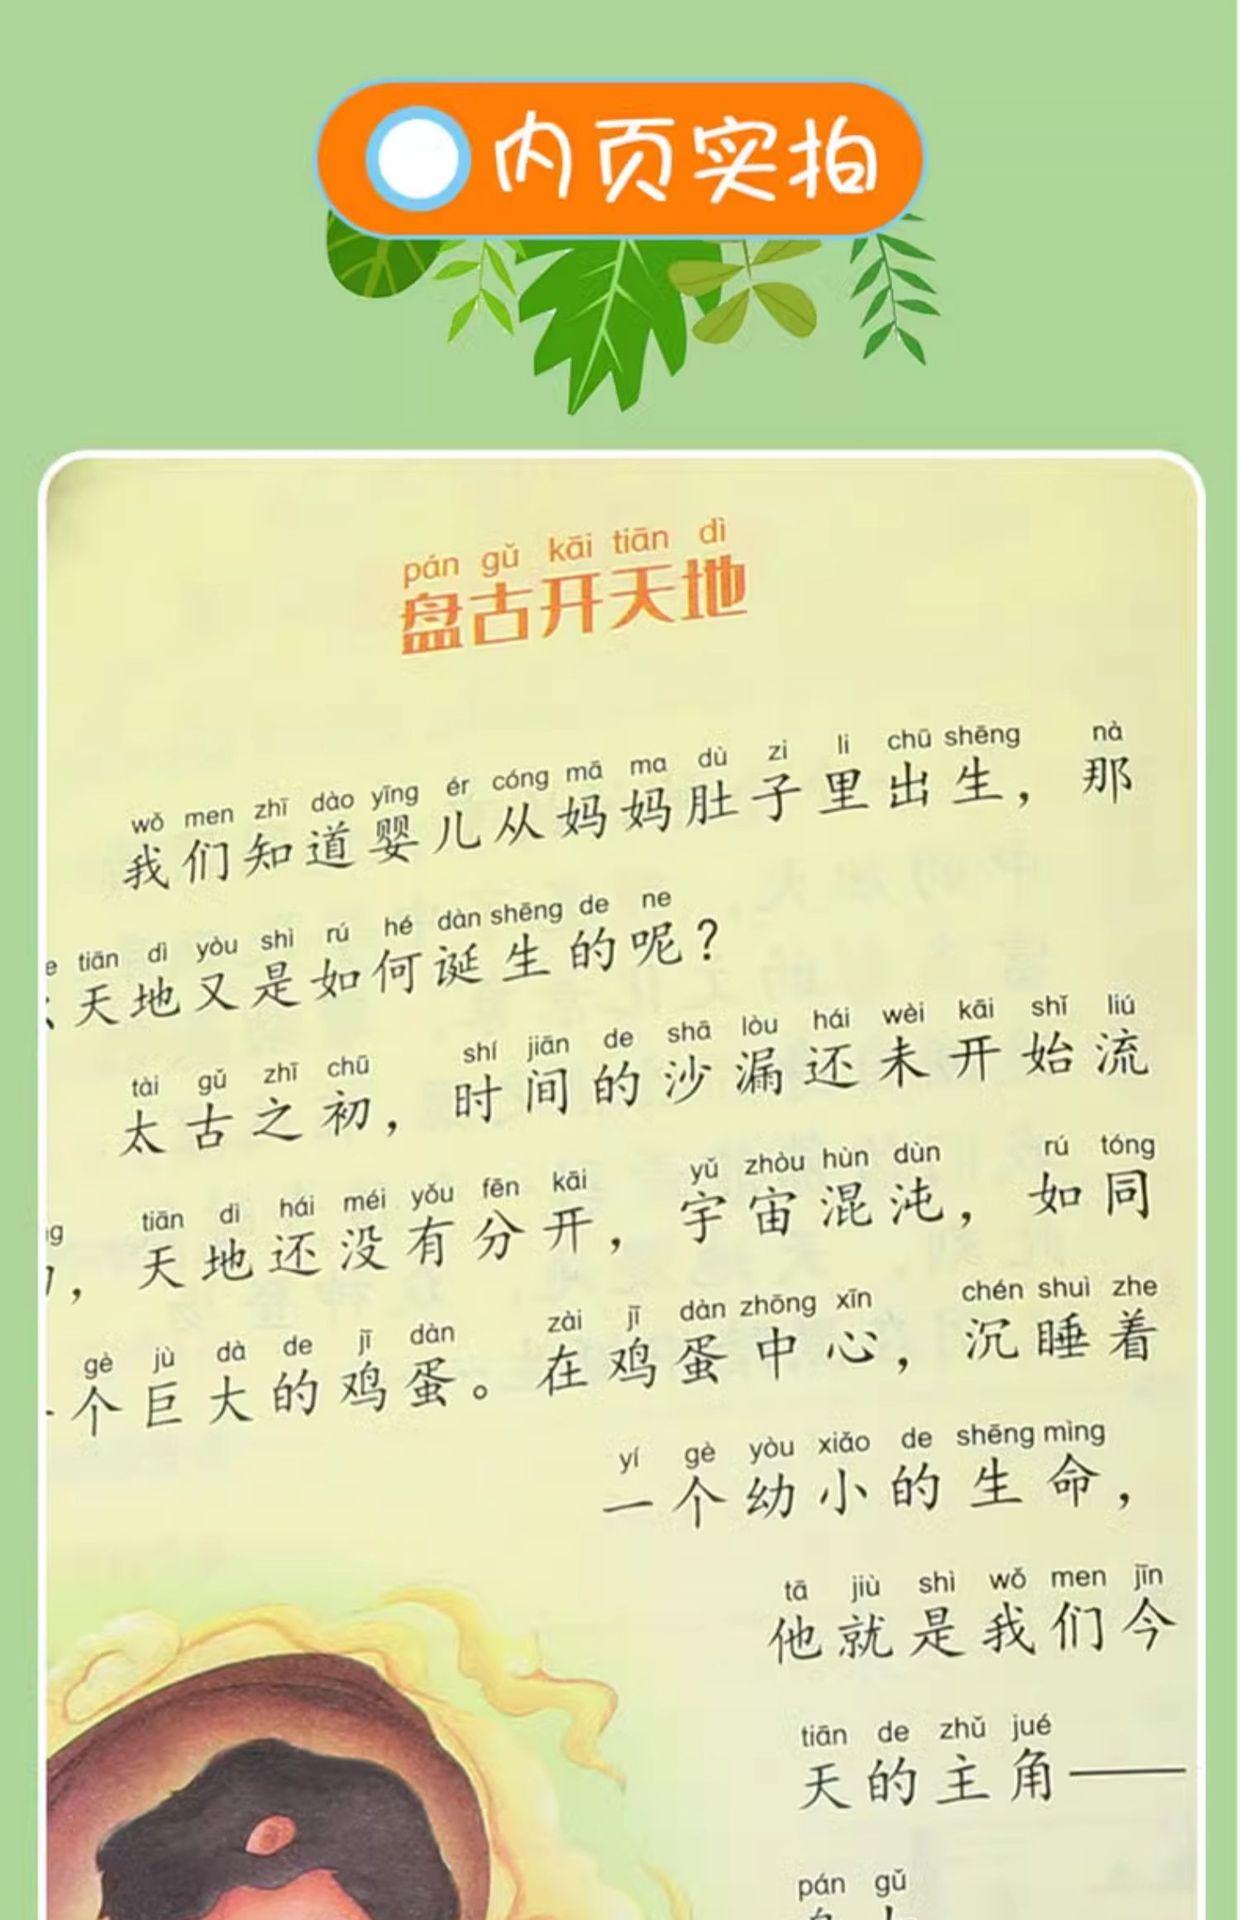 内页实拍
pán gǔ kāi tiān dì
盘古开天地
wǒ men zhī dào yīng ér cóng mā ma dù zi li chū shēng nà
我们知道婴儿从妈妈肚子里出生，那
tiān dì yòu shì rú hé dàn shēng de ne
天地又是如何诞生的呢？
tài gǔ zhī chū shí jiān de shā lòu hái wèi kāi shǐ liú
太古之初，时间的沙漏还未开始流
tiān dì hái méi yǒu fēn kāi yǔ zhòu hùn dùn rú tóng
，天地还没有分开，宇宙混沌，如同
gè jù dà de jī dàn zài jī dàn zhōng xīn chén shuì zhe
个巨大的鸡蛋。在鸡蛋中心，沉睡着
yí gè yòu xiǎo de shēng mìng
一个幼小的生命，
tā jiù shì wǒ men jīn
他就是我们今
tiān de zhǔ jué
天的主角——
pán gǔ